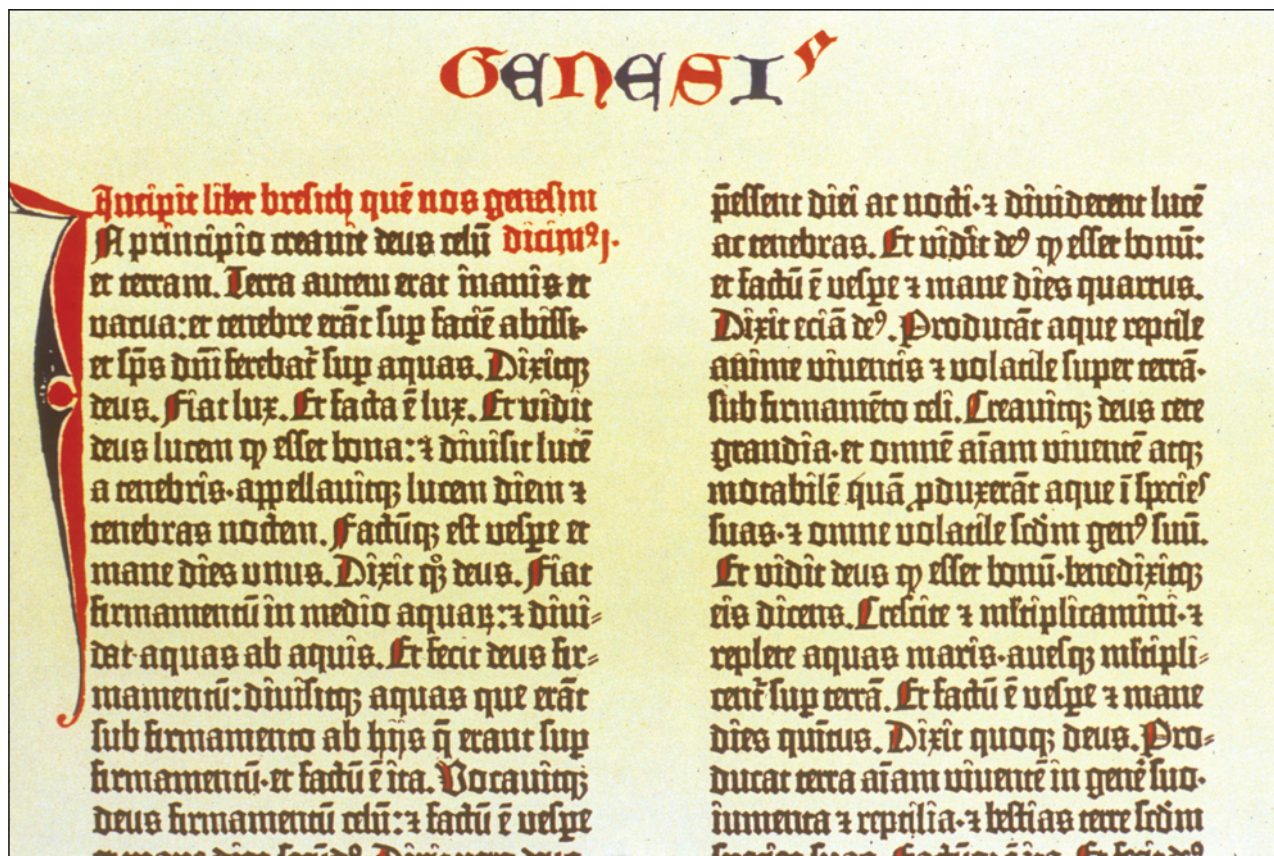 GENESIS
Incipit liber bresith quē nos genesim
A principio creavit deus celū dicimꝰ.
et terram. Terra autem erat inanis et
vacua: et tenebre erāt sup faciē abissi·
et sp̄s dn̄i ferebat̄ sup aquas. Dixitqꝫ
deus. Fiat lux. Et facta ē lux. Et vidit
deus lucem ꝙ esset bona: ⁊ divisit lucē
a tenebris· appellavitqꝫ lucem diem ⁊
tenebras noctem. Factūqꝫ est vespe et
mane dies unus. Dixit qꝫ deus. Fiat
firmamentū in medio aquaꝝ: ⁊ divi⸗
dat aquas ab aquis. Et fecit deus fir⸗
mamentū: divisitqꝫ aquas que erāt
sub firmamento ab hijs q̄ erant sup
firmamentū· et factū ē ita. Vocavitqꝫ
deus firmamentū celū: ⁊ factū ē vespe
p̄essent diei ac nocti· ⁊ dividerent lucē
ac tenebras. Et vidit deꝰ ꝙ esset bonū:
et factū ē vespe ⁊ mane dies quartus.
Dixit eciā deꝰ. Producāt aque reptile
anime viventis ⁊ volatile super terrā·
sub firmamēto celi. Creavitqꝫ deus cete
grandia· et omnē aīam viventē atqꝫ
motabilē quā ꝓduxerāt aque ī species
suas· ⁊ omne volatile scdm genꝰ suū.
Et vidit deus ꝙ esset bonū· benedixitqꝫ
eis dicens. Crescite ⁊ mltiplicamini· ⁊
replete aquas maris· avesqꝫ mltipli⸗
cent̄ sup terrā. Et factū ē vespe ⁊ mane
dies quītus. Dixit quoqꝫ deus. Pro⸗
ducat terra aīam viventē in genē suo·
iumenta ⁊ reptilia· ⁊ bestias terre scdm